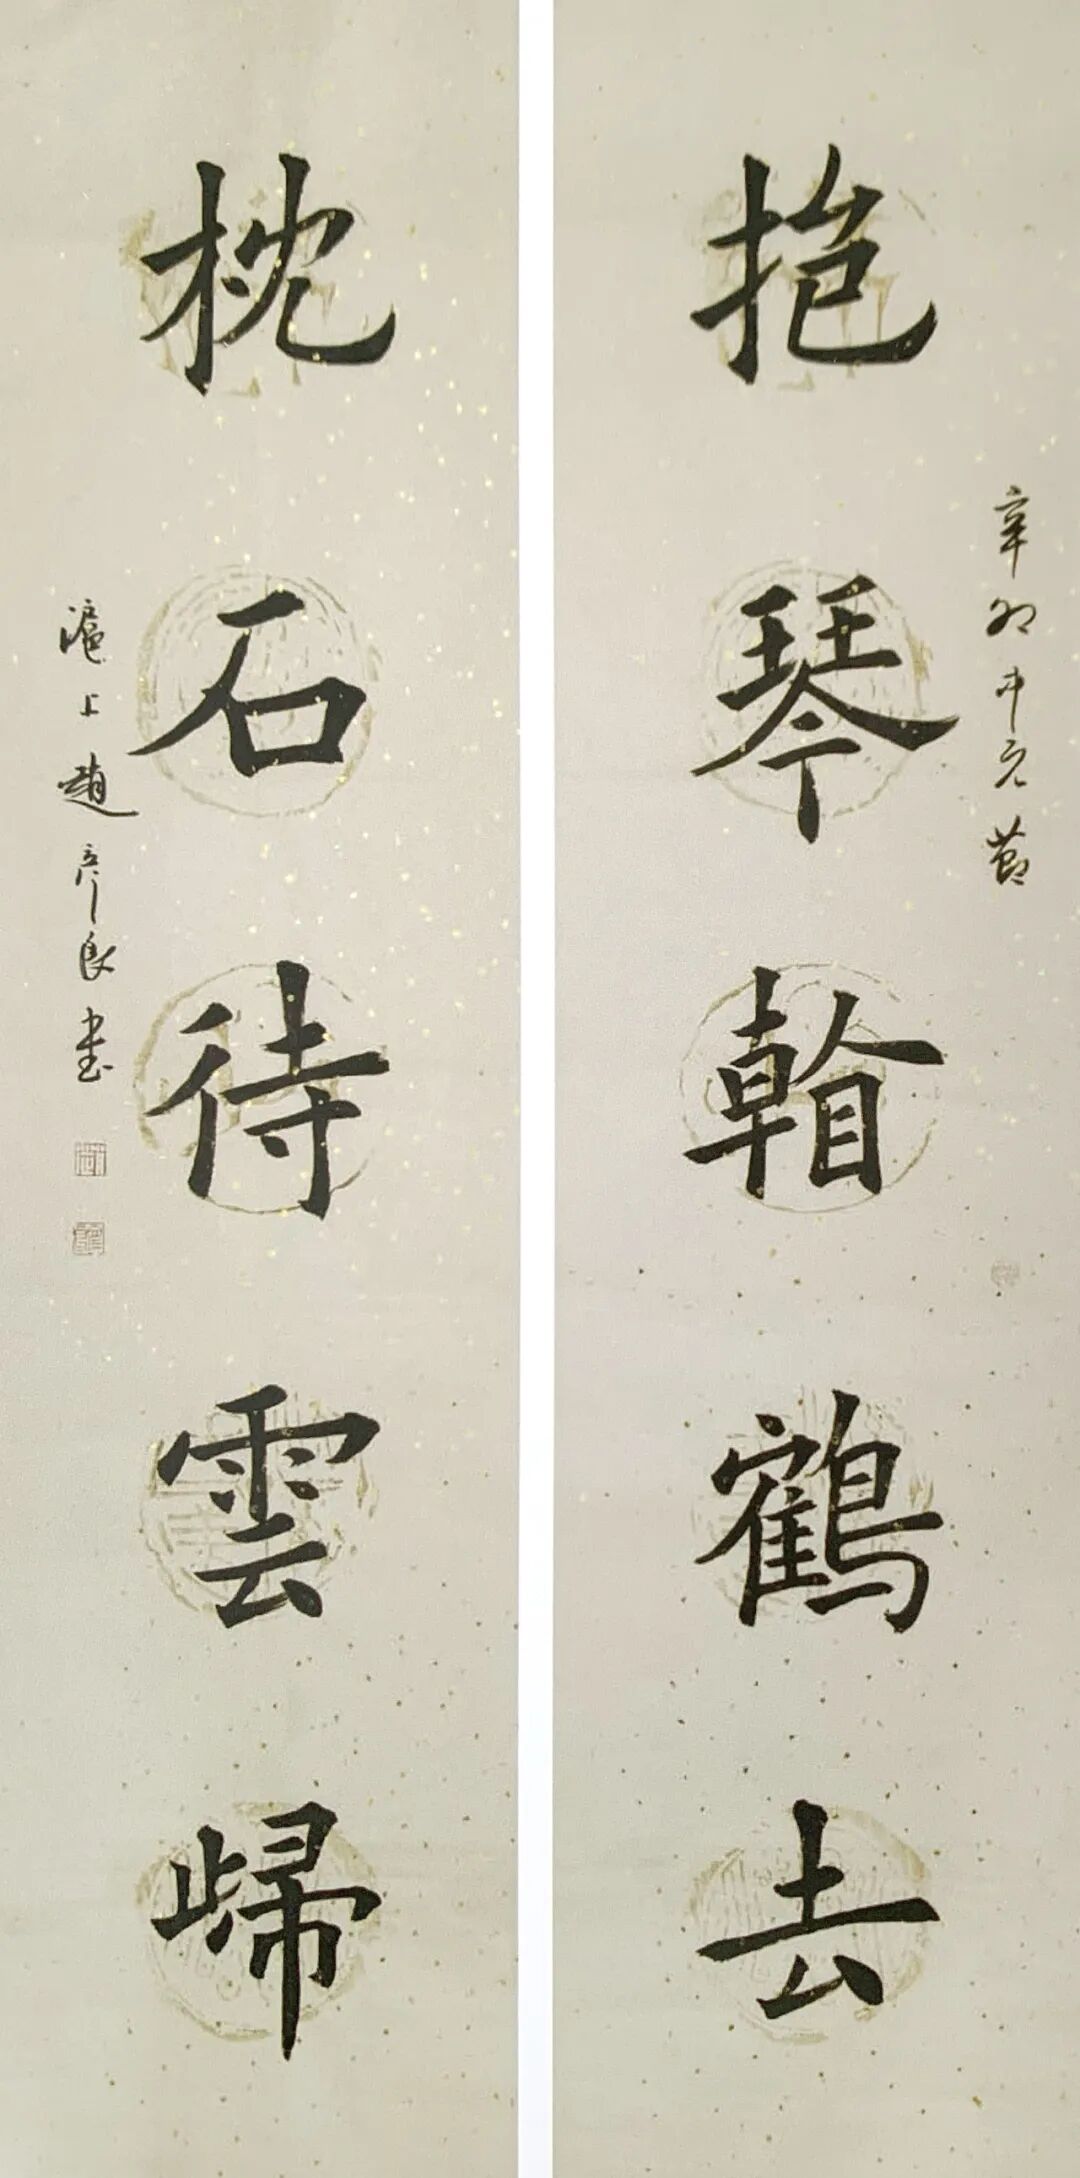 抱琴看鶴去
辛卯中元節
枕石待雲歸
滬上趙彥良書